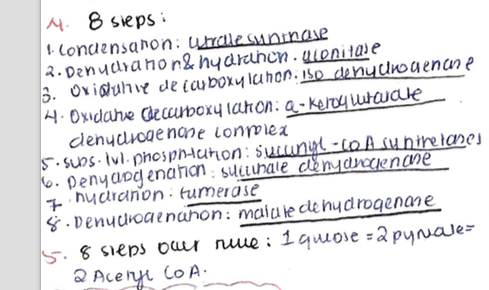 4. 8 steps:
1. Condensation: citrate synthase
2. Dehydration & hydration: aconitase
3. Oxidative decarboxylation: iso dehydrogenase
4. Oxidative decarboxylation: α-ketoglutarate
dehydrogenase complex
5. subs. lvl. phosphtlation: succinyl-CoA synthetases
6. Dehydrogenation: succinate dehydrogenase
7. hydration: fumerase
8. Dehydrogenation: malate dehydrogenase
5. 8 steps over rule: 1 glucose = 2 pyruvate =
2 Acetyl CoA.